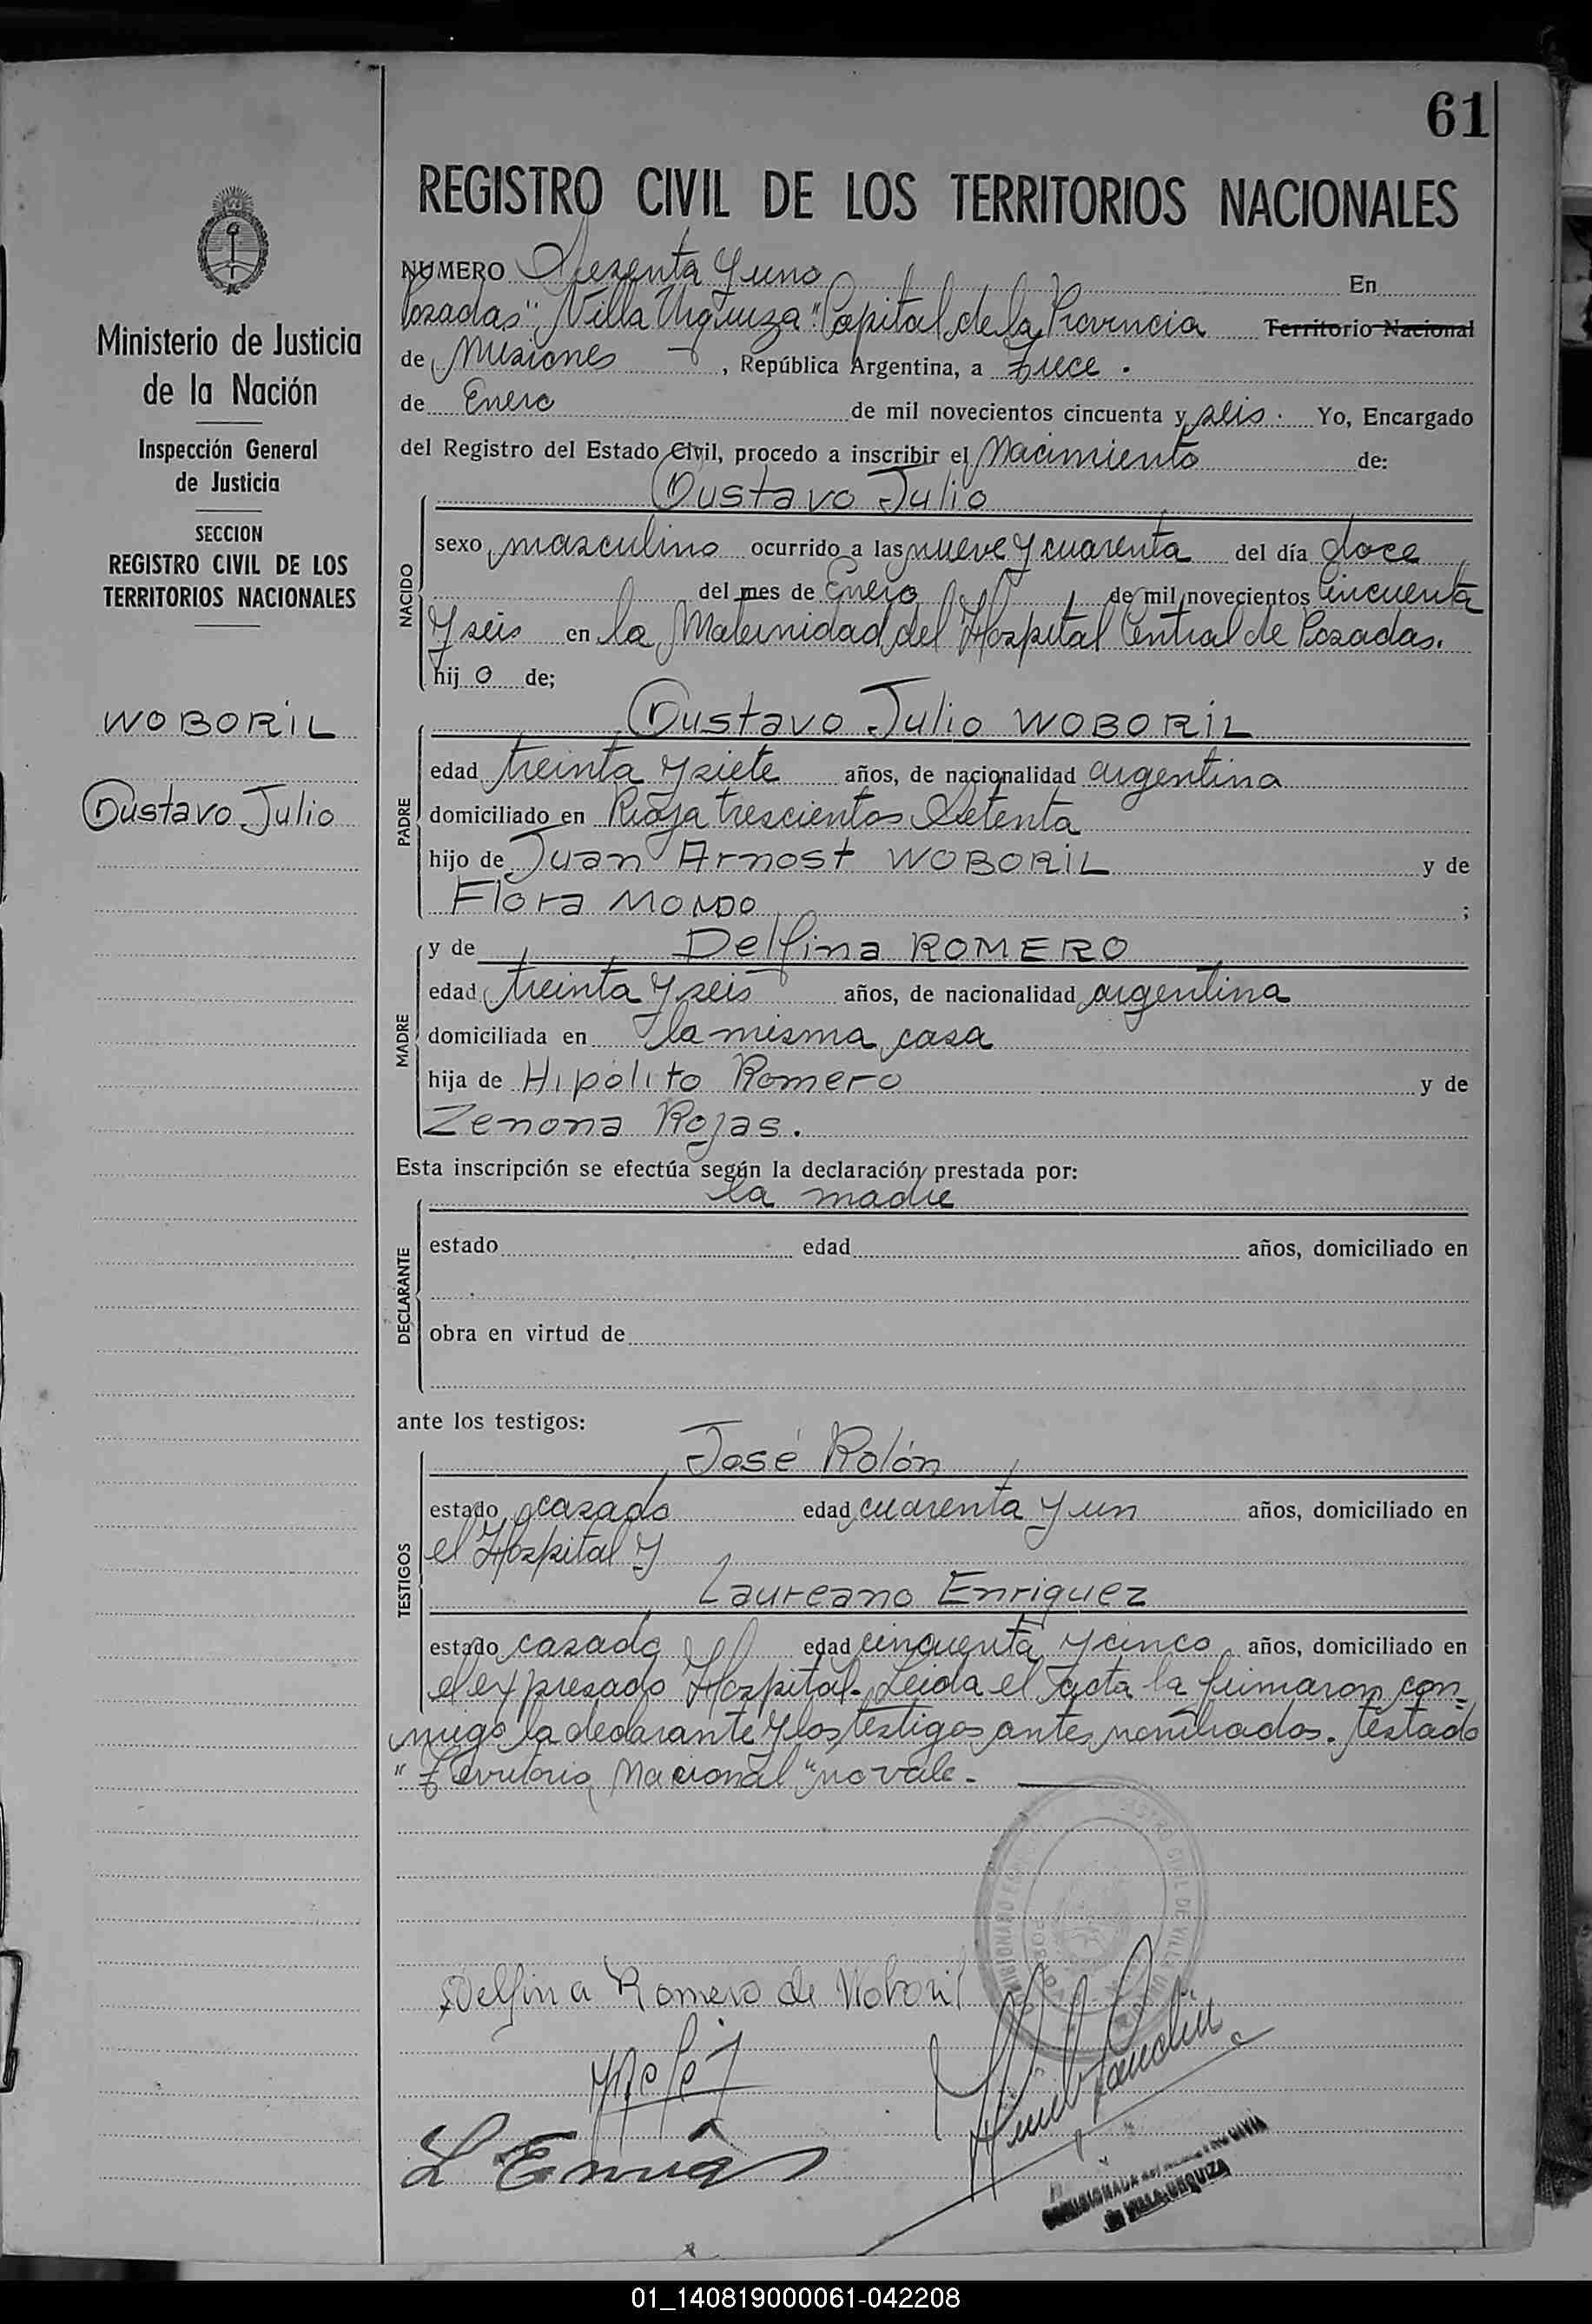 61
REGISTRO CIVIL DE LOS TERRITORIOS NACIONALES
Ministerio de Justicia
de la Nación
Inspección General
de Justicia
SECCION
REGISTRO CIVIL DE LOS
TERRITORIOS NACIONALES
WOBORIL
Gustavo Julio
NUMERO Sesenta y uno En
Posadas "Villa Urquiza" Capital de la Provincia Territorio Nacional
de Misiones, República Argentina, a trece.
de Enero de mil novecientos cincuenta y seis. Yo, Encargado
del Registro del Estado Civil, procedo a inscribir el Nacimiento de:
Gustavo Julio
NACIDO
sexo masculino ocurrido a las nueve y cuarenta del día doce
del mes de Enero de mil novecientos Cincuenta
y seis en la Maternidad del Hospital Central de Posadas.
hij o de;
Gustavo Julio WOBORIL
PADRE
edad treinta y siete años, de nacionalidad argentina
domiciliado en Rioja trescientos Setenta
hijo de Juan Arnost WOBORIL y de
Flora MONDO ;
y de Delfina ROMERO
MADRE
edad treinta y seis años, de nacionalidad argentina
domiciliada en la misma casa
hija de Hipólito Romero y de
Zenona Rojas.
Esta inscripción se efectúa según la declaración prestada por:
la madre
DECLARANTE
estado edad años, domiciliado en
obra en virtud de
ante los testigos:
José Rolón
TESTIGOS
estado casado edad cuarenta y un años, domiciliado en
el Hospital y
Laureano Enriquez
estado casado edad cincuenta y cinco años, domiciliado en
el expresado Hospital. Leida el acta la firmaron con-
migo la declarante y los testigos antes nombrados. testado
"Territorio Nacional" no vale.
Delfina Romero de Woboril
L Enriq
DE VILLA URQUIZA
01_140819000061-042208